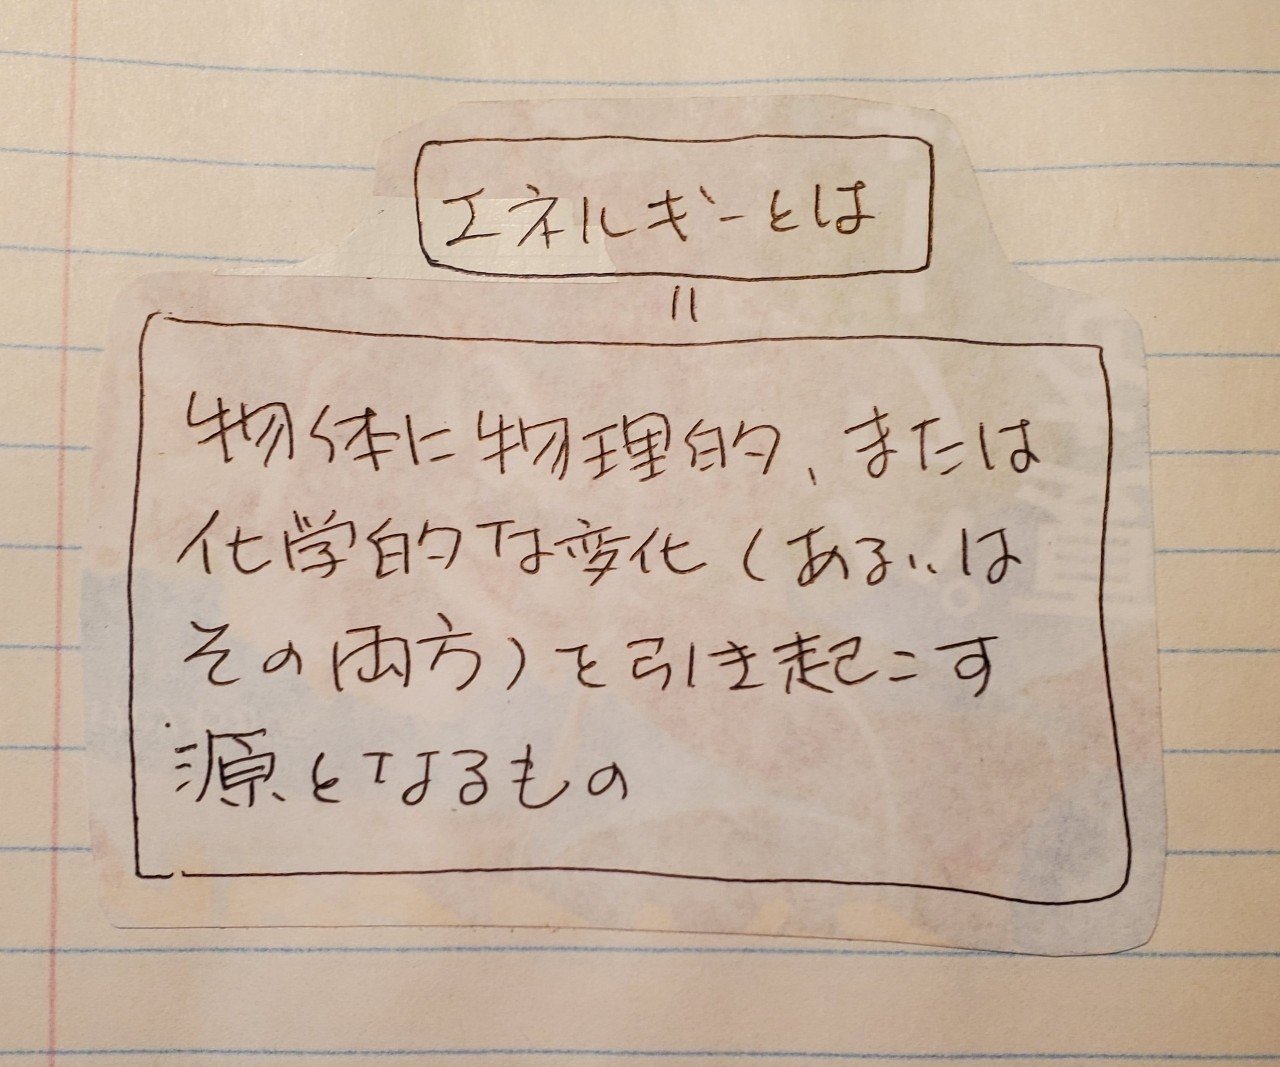 エネルギーとは
=
物体に物理的、または
化学的な変化(あるいは
その両方)を引き起こす
源となるもの